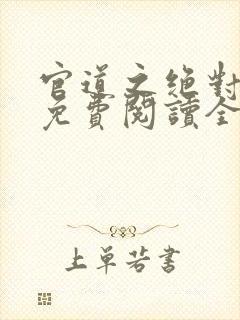 官道之绝對
免費閱讀全
上單若書